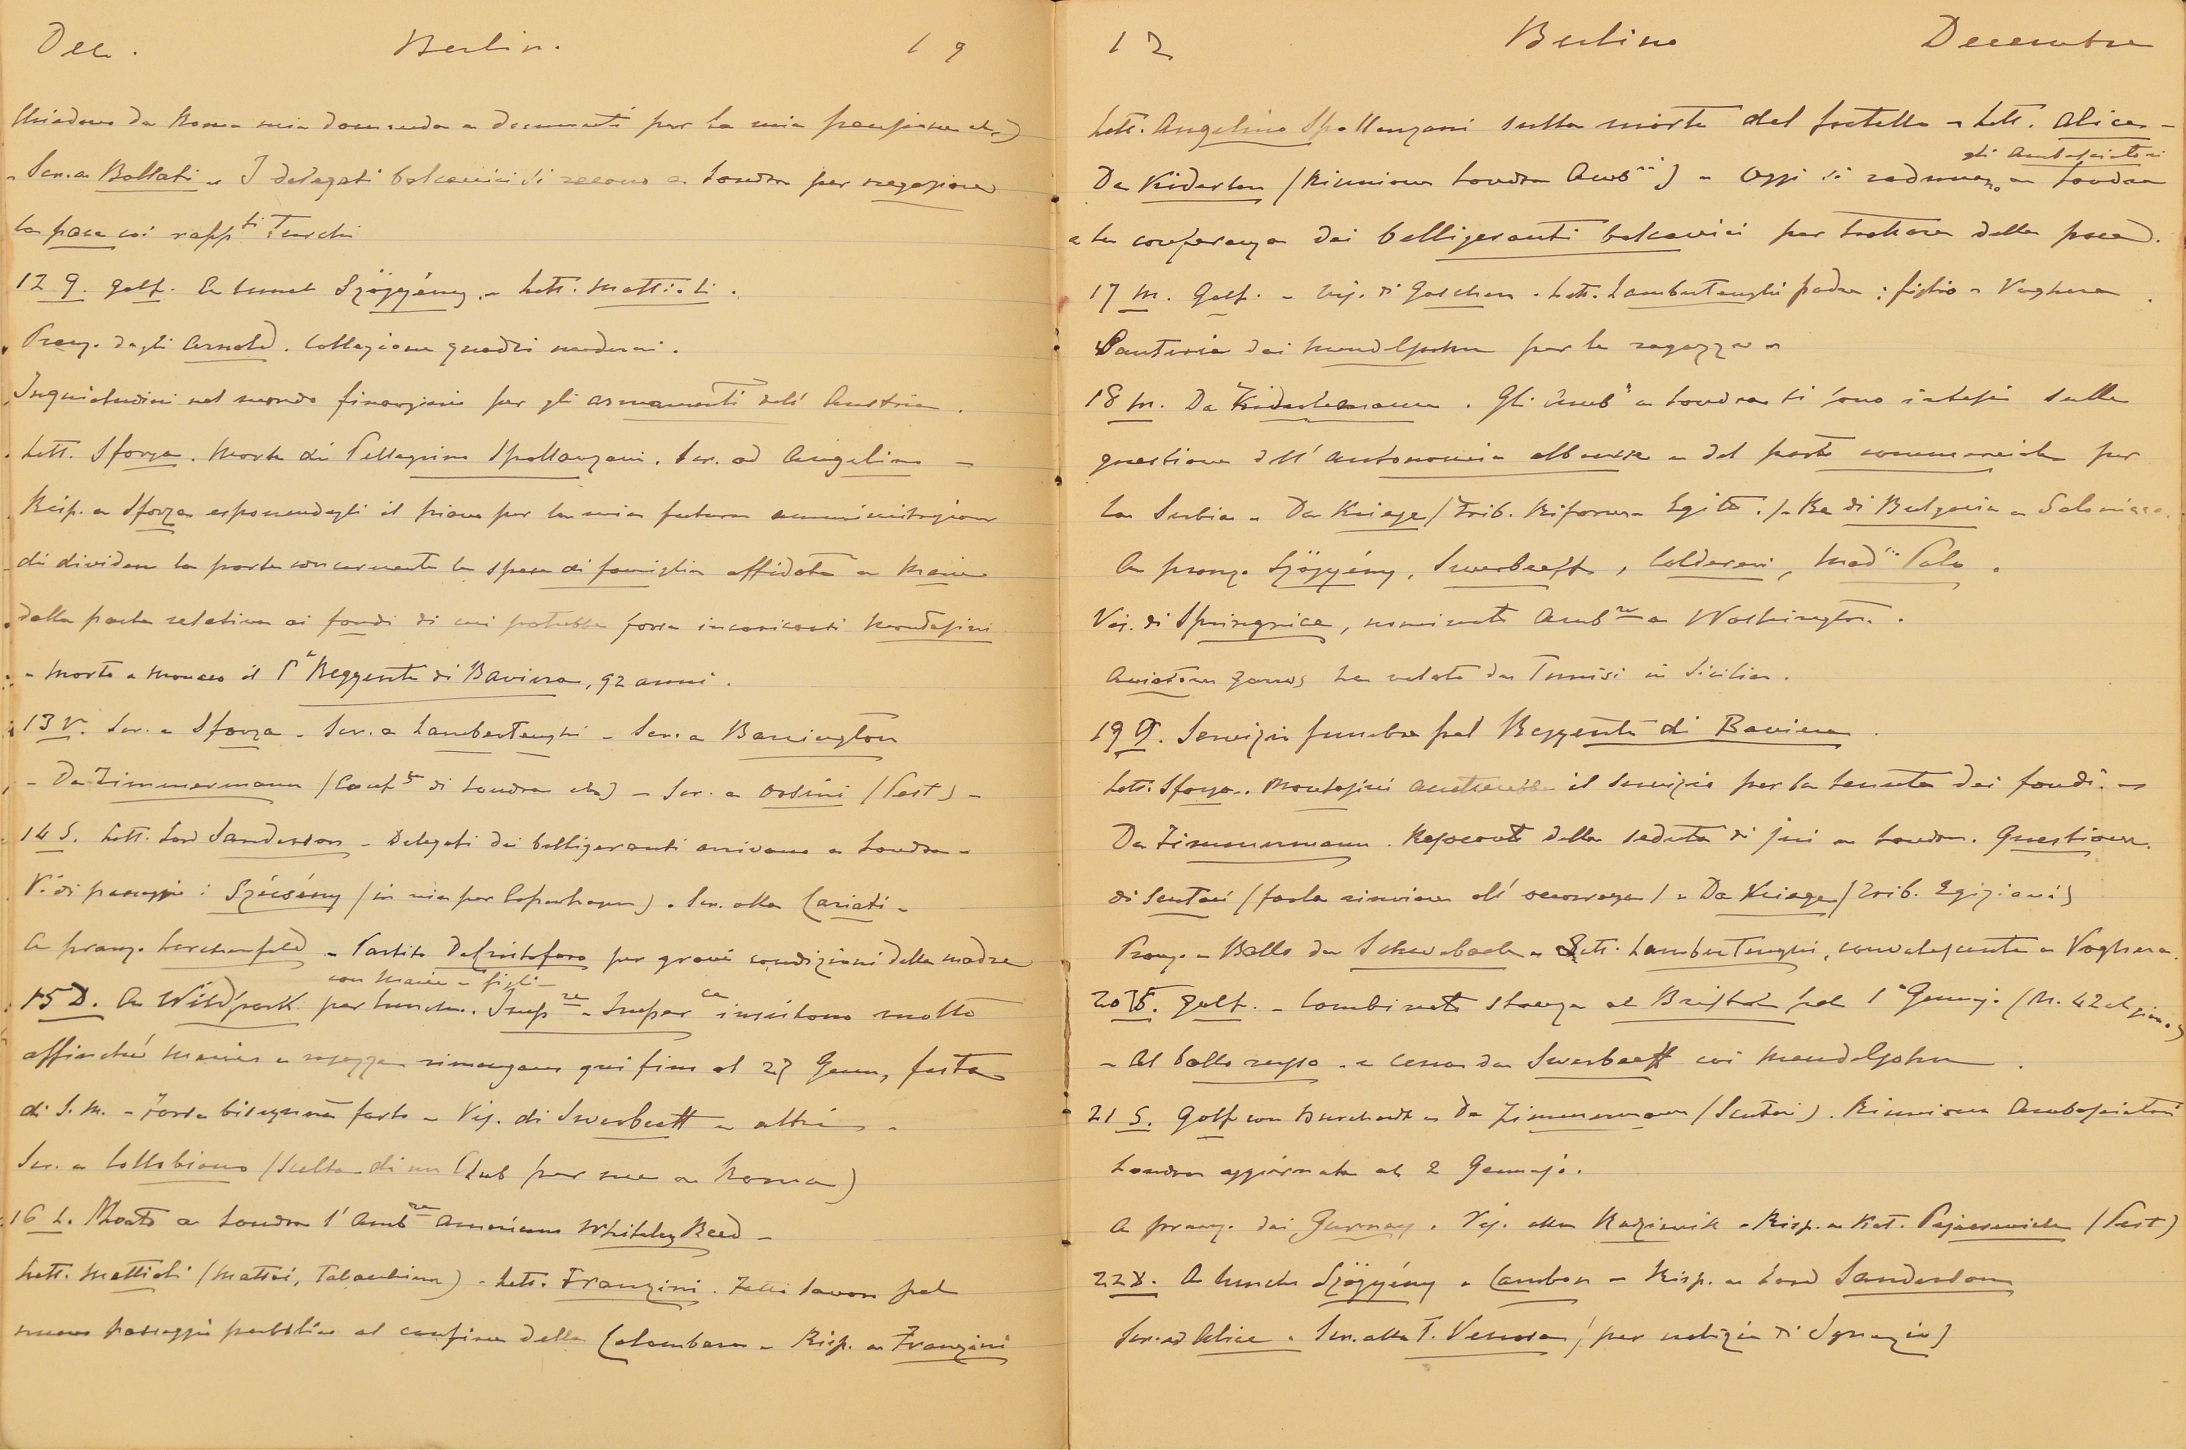 Dec. Berlin. 19
Chiedono da Roma mia domanda e documenti per la mia pensione etc)
- Scr. a Bollati - I delegati balcanici si recano a Londra per negoziare
la pace coi rapp.ti Turchi
12 G. Golf. A lunch Szögyény - Lett. Mattioli.
Pranz. dagli Arnold. Collezione quadri moderni.
Inquietudini nel mondo finanziario per gli armamenti dell' Austria.
Lett. Sforza. Morte di Pellegrino Spallanzani. Scr. ad Angelina -
Risp. a Sforza esponendogli il piano per la mia futura amministrazione
di dividere la parte concernente le spese di famiglia affidata a Maria
dalla parte relativa ai fondi di cui potrebbe forse incaricarsi
- Morto a Monaco il P.e Reggente di Baviera, 92 anni.
13 V. Scr. a Sforza - Scr. a Lambertenghi - Scr. a Barrington
- Da Zimmermann (Conf.e di Londra etc) - Scr. a Orsini (Pest) -
14 S. Lett. Lord Sanderson - Delegati dei belligeranti arrivano a Londra -
V. di passaggio: Szécsény (in via per Copenhagen) - Scr. alla Cariati -
A pranz. Lerchenfeld - Partito Decristoforo per gravi condizioni della madre
con Maria e figli -
15 D. A Wildpark per lunch. Imp.re e Imper.ce insistono molto
affinché Maria e ragazze rimangano qui fino al 27 Genn, festa
di S. M. - Forse bisognerà farlo - Vis. di Swerbeeff e altri -
Scr. a Collobiano (scelta di un Club per me a Roma)
16 L. Morto a Londra l'Amb.re Americano Whitelaw Reed -
Lett. Mattioli (Mattei, ) - Lett. Franzini. lavori pel
nuovo passaggio pubblico al confine della Colombara - Risp. a Franzini
12 Berlino Decembre
Lett. Angelina Spallanzani sulla morte del fratello - Lett. Alice -
gli Ambasciatori
Da Kiderlen (Riunione Londra Amb.ri) - Oggi si radunano a Londra
e la conferenza dei belligeranti balcanici per trattare della pace.
17 M. Golf. - Vis. di Goschen - Lett. Lambertenghi padre: figlio a Voghera.
Sauterie dai Mendelssohn per le ragazze -
18 M. Da Kiderlen . Gli Amb.i a Londra si sono intesi sulla
questione dell' autonomia albanese e del porto commerciale per
la Serbia - Da Kriege (Trib. Riforma Egitto.) - Re di Bulgaria a Salonicco.
A pranz. Szögyény, Swerbeeff, Calderari, Mad. Polo.
Vis. di Springrice, nominato Amb.re a Washington.
Aviatore Garros ha volato da Tunisi in Sicilia.
19 G. Servizio funebre pel Reggente di Baviera.
Lett. Sforza. il servizio per la tenuta dei fondi. -
Da Zimmermann. Resoconto della seduta di jeri a Londra. Questione
di Scutari (farla rinviare all' occorrenza) - Da Kriege (Trib. Egiziani)
Pranz. e Ballo da Schwabach - Lett. Lambertenghi, convalescente a Voghera.
20 V. Golf. - Combinato stanza al Bristol pel 1° Gennajo (M. 42 al giorno)
- Al ballo russo - e cena da Swerbeeff coi Mendelssohn.
21 S. Golf con Burchardt - Da Zimmermann (Scutari). Riunione Ambasciatori
Londra aggiornata al 2 Gennajo.
A pranz. dai Gurney. Vis. alla Radziwill - Risp. a Kat. Pejacsevich (Pest)
22 D. A lunch Szögyény e Cambon - Risp. a Lord Sanderson
Scr. ad Alice - Scr. alla T. Venosa (per notizie di Ignazio)